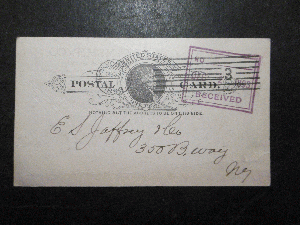 UNITED STATES
POSTAL CARD.
NOTHING BUT THE ADDRESS TO BE ON THIS SIDE.
3
RECEIVED
E S Jaffray & Co
350 Bway
Ny